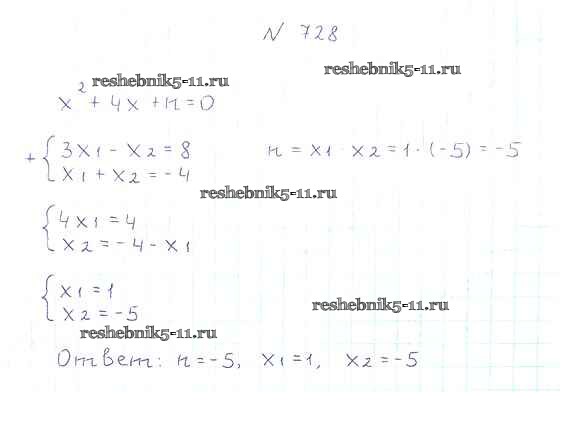 N 728
reshebnik5-11.ru
reshebnik5-11.ru
x² + 4x + n = 0
+ { 3x1 - x2 = 8
x1 + x2 = -4
n = x1 · x2 = 1 · (-5) = -5
reshebnik5-11.ru
{ 4x1 = 4
x2 = -4 - x1
{ x1 = 1
x2 = -5
reshebnik5-11.ru
reshebnik5-11.ru
Ответ: n = -5, x1 = 1, x2 = -5